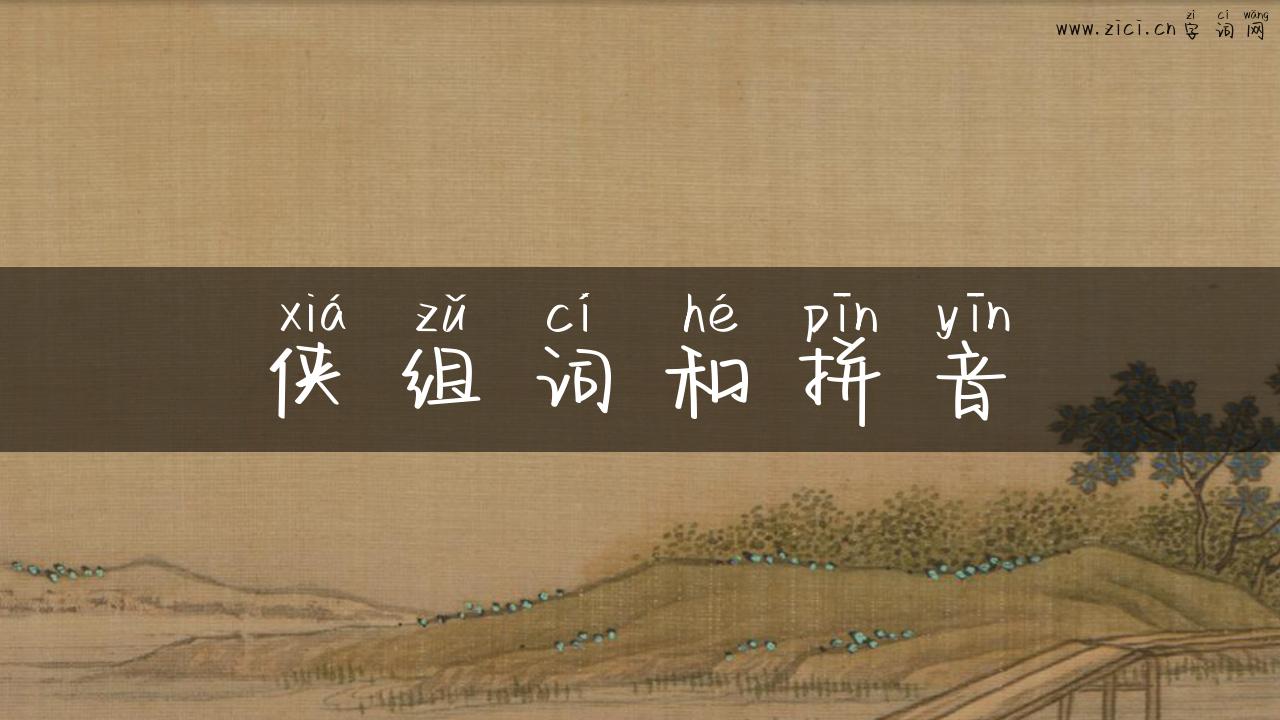 zì cí wǎng
www.zici.cn字词网
xiá zǔ cí hé pīn yīn
侠组词和拼音